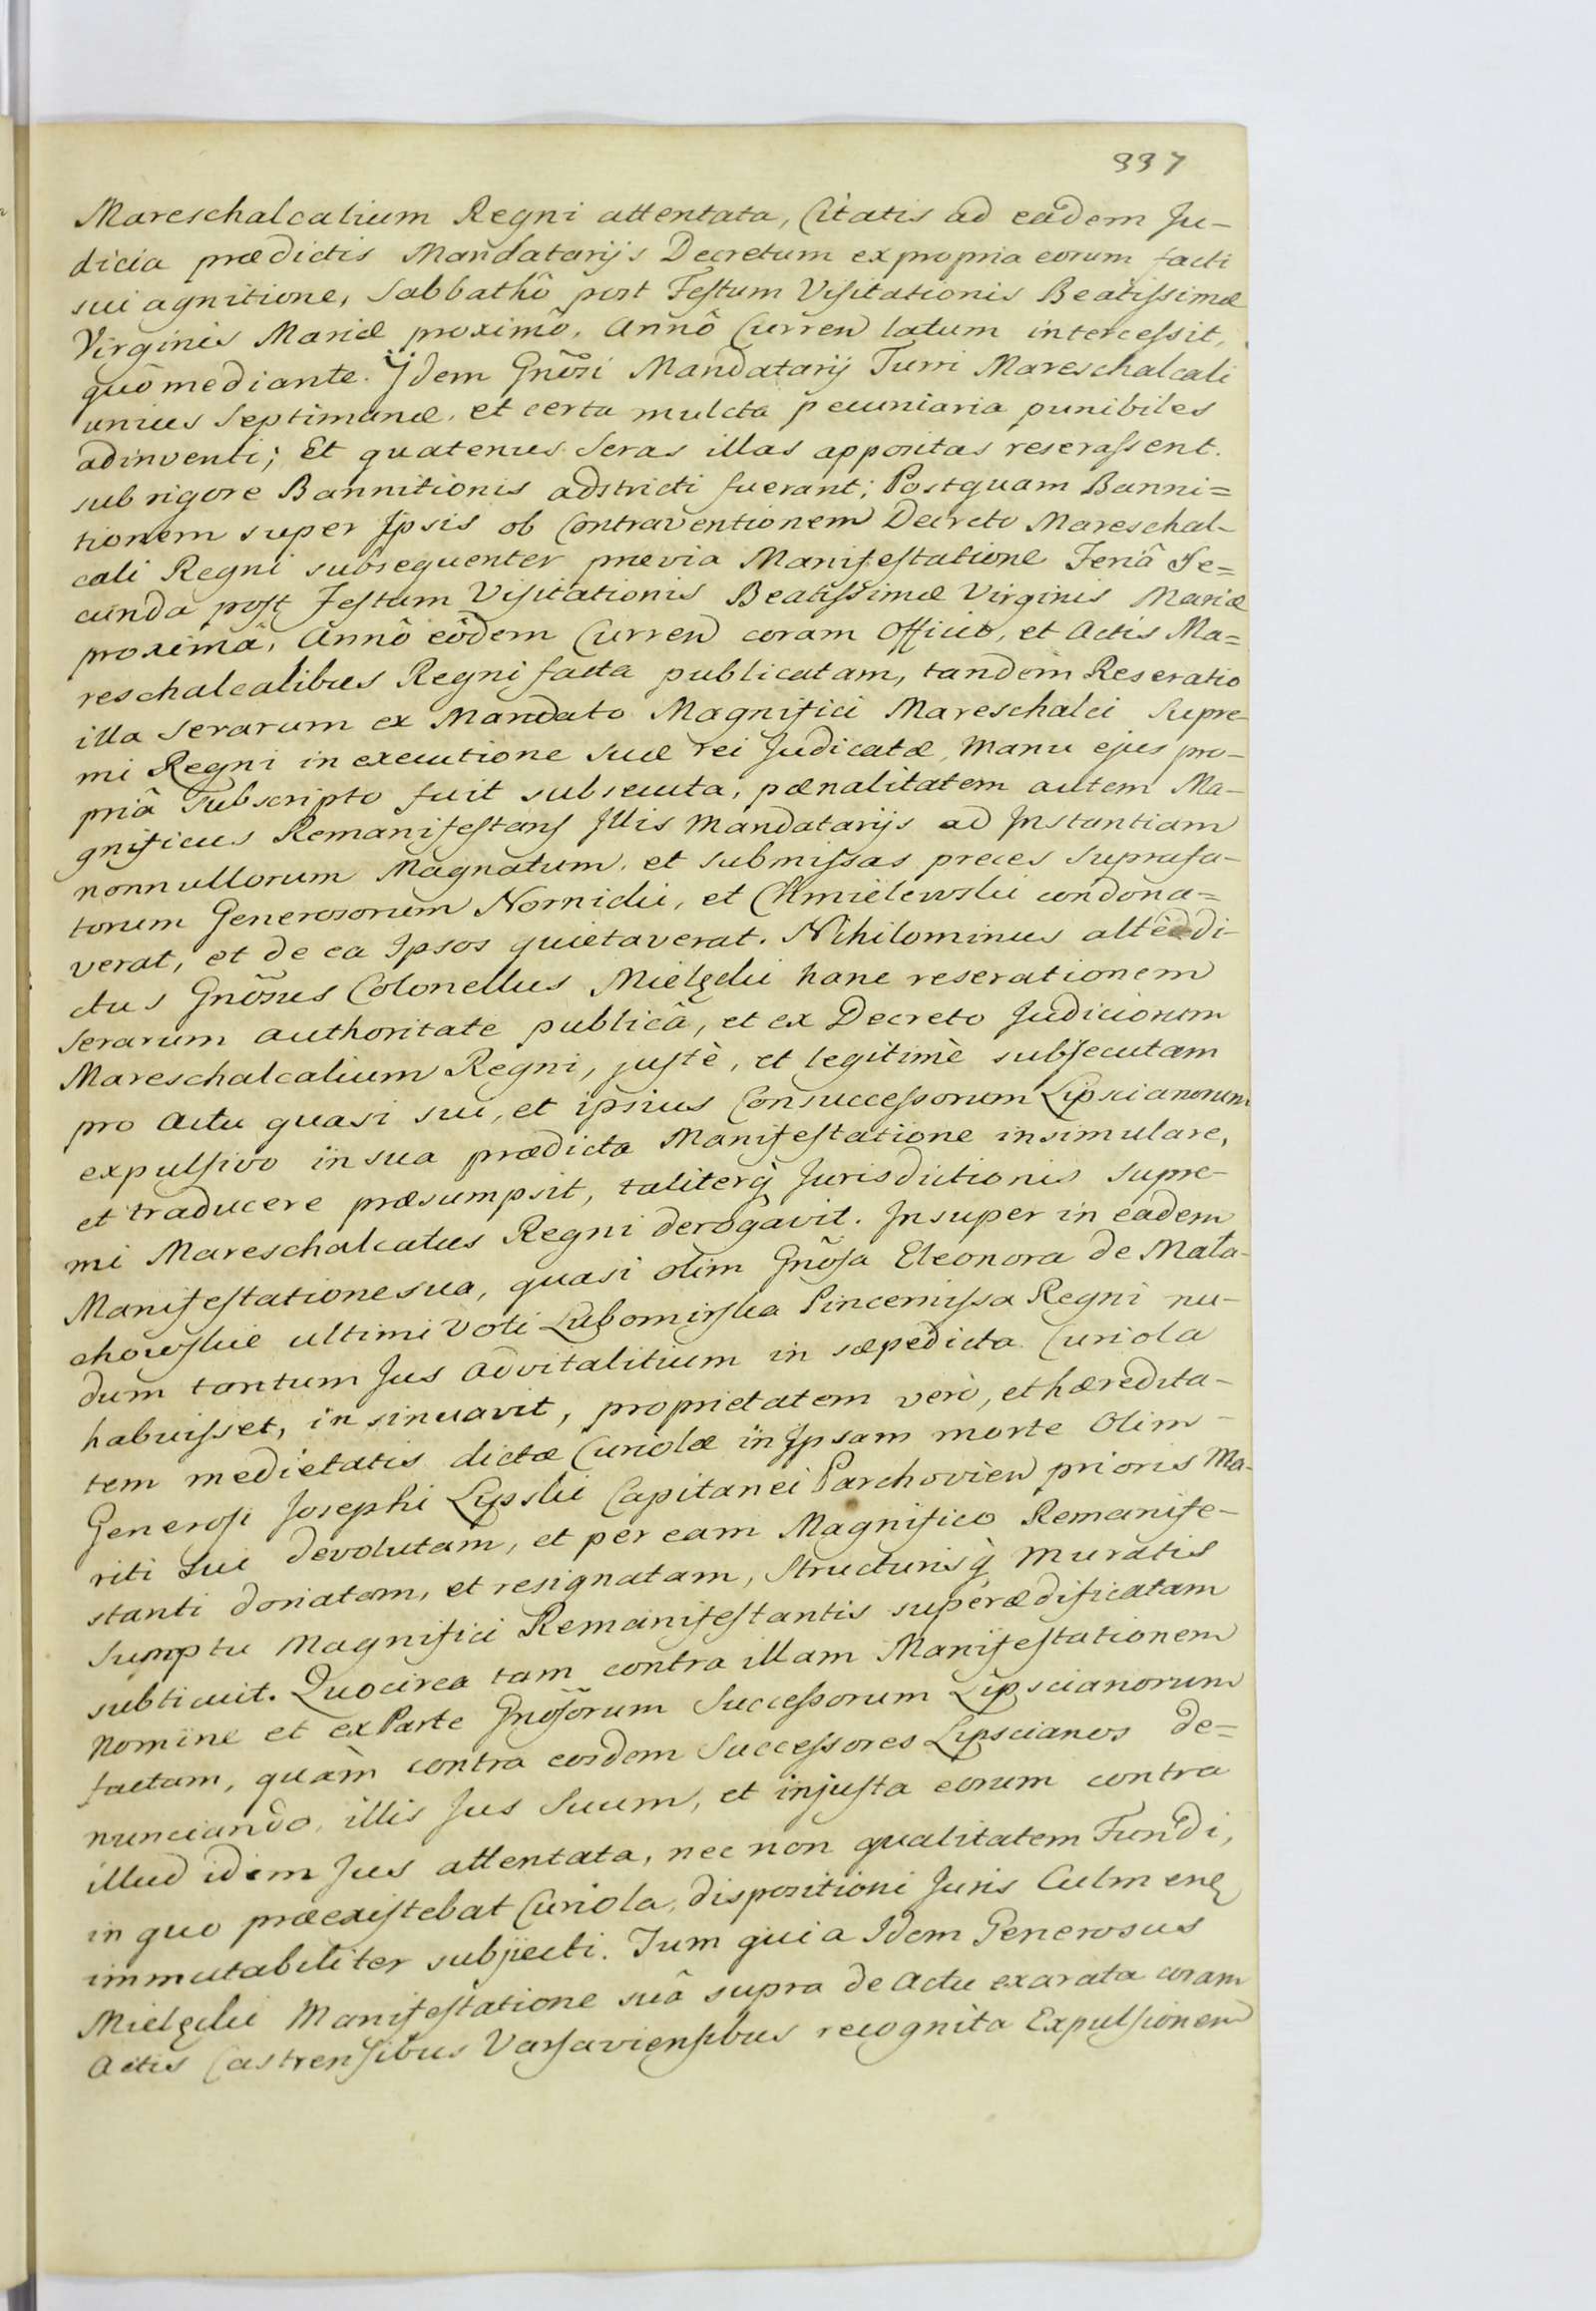 337
Mareschalcalium Regni attentata, Citatis ad eadem Ju-
dicia prædictis Mandatarijs Decretum ex propria eorum facti
sui agnitione, Sabbathô post Festum Visitationis Beatissimæ
Virginis Mariæ proximô, Annô Curren latum intercessit,
quô mediante. Jidem Gnõsi Mandatarij Turri Mareschalcali
unius Septimanæ, et certa mulcta pecuniaria punibiles
adinventi; Et quatenus Seras illas appositas reserassent.
sub rigore Bannitionis adstricti fuerant; Postquam Banni=
tionem super Ipsis ob Contraventionem Decreto Mareschal-
cali Regni subsequenter prævia Manifestatione Feriâ Se=
cunda post Festum Visitationis Beatissimæ Virginis Mariæ
proximâ, Annô eôdem Curren coram Officio, et Actis Ma=
reschalcalibus Regni facta publicatam, tandem Reseratio
illa Serarum ex Mandato Magnifici Mareschalci Supre-
mi Regni in executione suæ rei Judicatæ, Manu ejus pro-
priâ Subscripto fuit subsecuta, pænalitatem autem Ma-
gnificus Remanifestans Illis Mandatarijs ad Instantiam
nonnullorum Magnatum, et submissas preces suprafa-
torum Generosorum Nornicki, et Chmielewski condona=
verat, et de ea Ipsos quietaverat. Nihilominus altedi-
ctus Gnõsus Colonellus Mielęcki hanc reserationem
Serarum authoritate publicâ, et ex Decreto Judiciorum
Mareschalcalium Regni, justè, et legitimè subsecutam
pro Actu quasi sui, et ipsius Consuccessorum Lipscianorum
expulsivo in sua prædicta Manifestatione insimulare,
et traducere præsumpsit, taliterq̀ Jurisdictionis Supre-
mi Mareschalcatus Regni derogavit. Insuper in eadem
Manifestatione sua, quasi olim Gnõsa Eleonora de Mała-
chowskie ultimi Voti Lubomirska Pincernissa Regni nu-
dum tantum Jus advitalitium in sæpedicta Curiola
habuisset, insinuavit, proprietatem verò, et hæredita-
tem medietatis dictæ Curiolæ in Ipsam morte Olim
Generosi Josephi Lipski Capitanei Parchovien prioris Ma-
riti Sui devolutam, et per eam Magnifico Remanife-
stanti donatam, et resignatam, Structurisq̀ muratis
Sumptu Magnifici Remanifestantis superædificatam
subticuit. Quocirca tam contra illam Manifestationem
Nomine et ex Parte Gnõsorum Successorum Lipscianorum
factam, quàm contra eosdem Successores Lipscianos de=
nunciando, illis Jus Suum, et injusta eorum contra
illud idem Jus attentata, nec non qualitatem Fundi,
in quo præexistebat Curiola, dispositioni Juris Culmenę
immutabiliter subjecti. Tum quia Idem Generosus
Mielęcki Manifestatione suâ supra de Actu exarata coram
Actis Castrensibus Varsaviensibus recognita Expulsionem